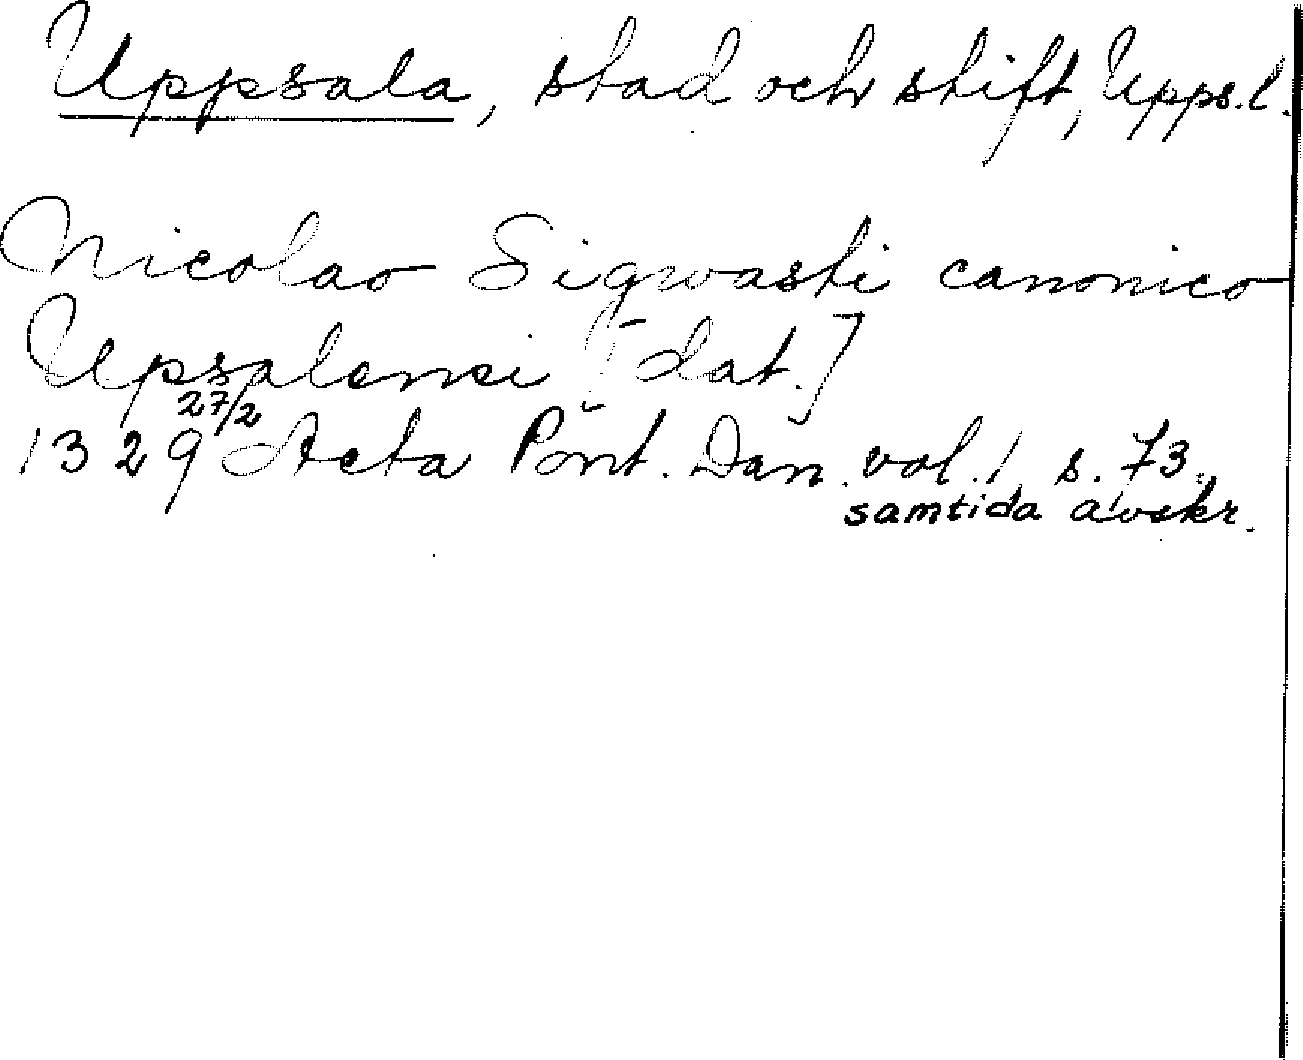 Uppsala, stad och stift, Upps.l.
Nicolao Sigwasti canonico
Upsalensi [dat.]
1329 27/2 Acta Pont. Dan. vol. 1, s. 73.
samtida avskr.